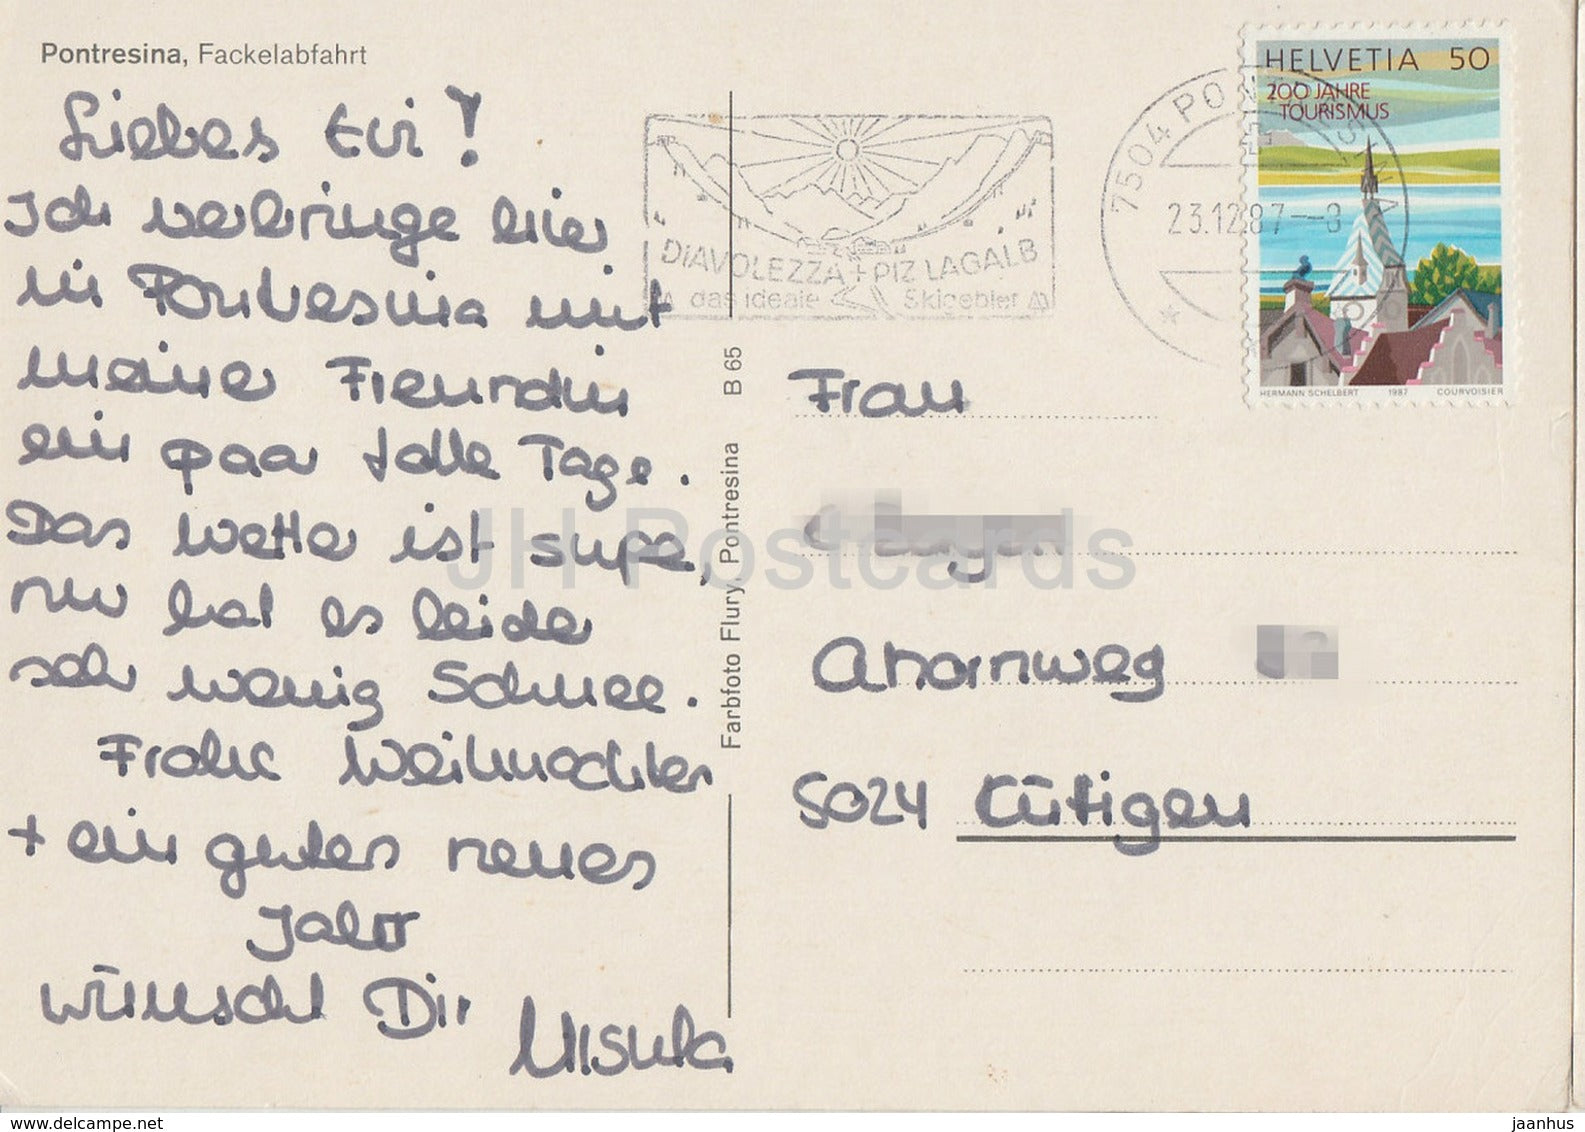 Pontresina, Fackelabfahrt
Liebes Evi!
Ich verbringe hier
in Pontresina mit
meiner Freundin
ein paar tolle Tage.
Das Wetter ist super,
nur hat es leider
sehr wenig Schnee.
Frohe Weihnachten
+ ein gutes neues
Jahr
wünscht Dir Ursula
Farbfoto Flury, Pontresina B 65
DIAVOLEZZA + PIZ LAGALB
das ideale Skigebiet
7504 PONTRESINA
23.12.87 – 8
HELVETIA 50
200 JAHRE
TOURISMUS
HERMANN SCHELBERT 1987 COURVOISIER
Frau
Ahornweg
5024 Küttigen
JH Postcards
www.delcampe.net
jaanhus